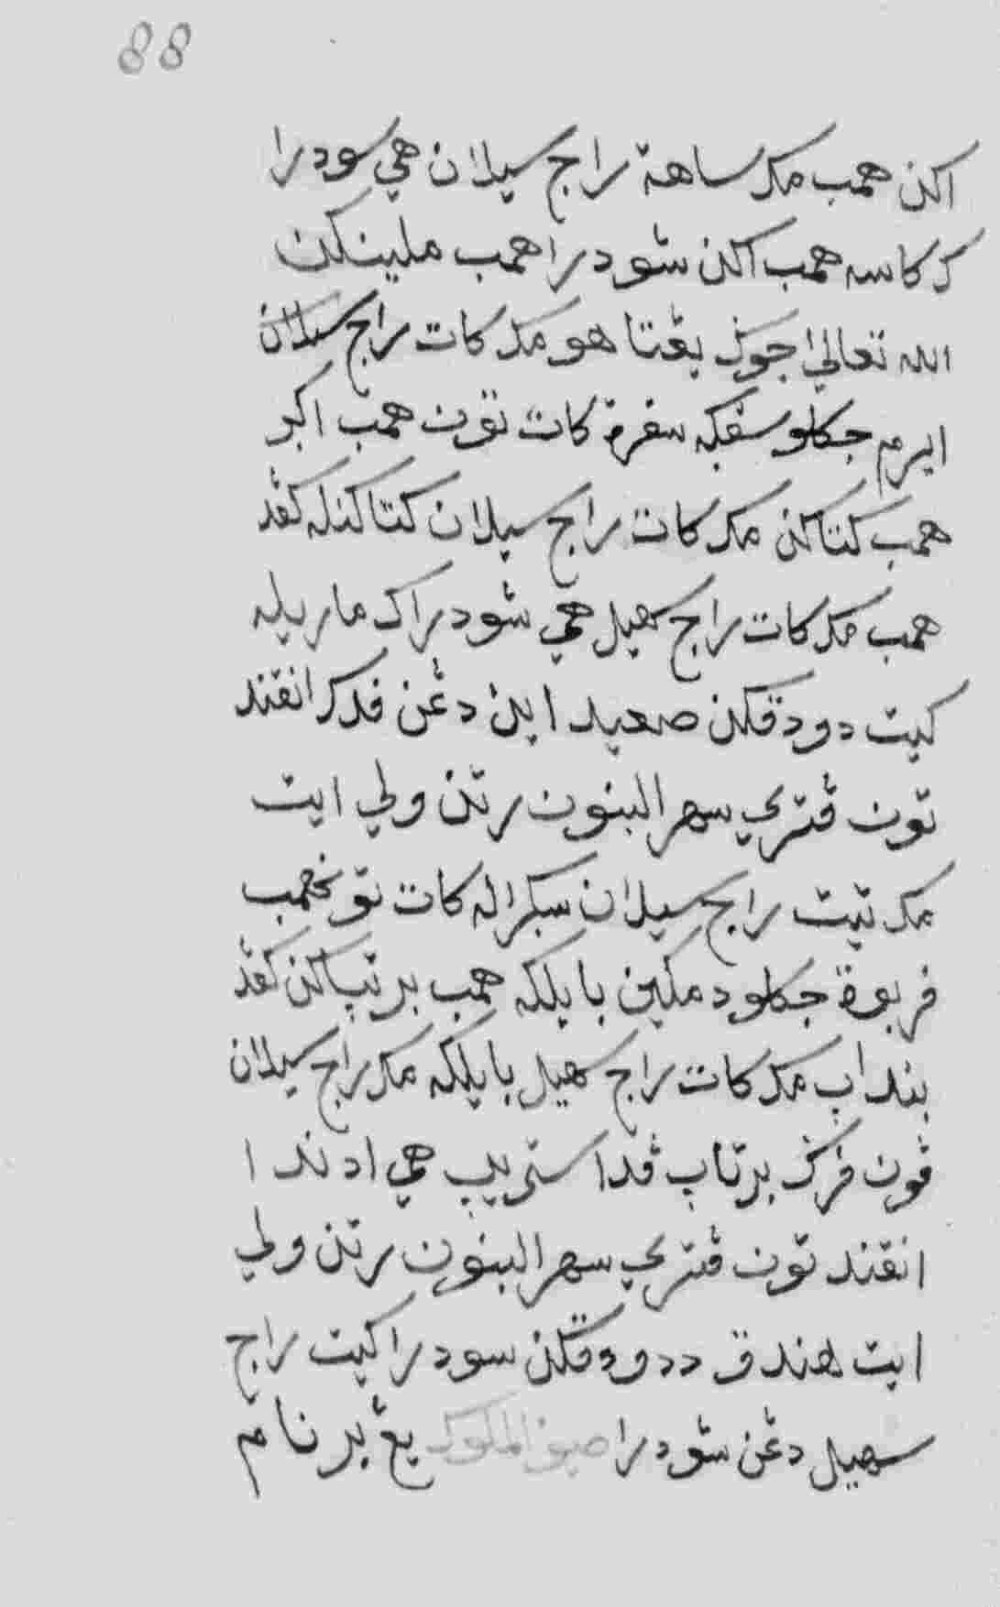 88
اکن همب مک ساهة راج سيلان هي سودرا
کرکاسه همب اکن سودرا همب ملينکن
الله تعالى جوڬ يڠتاهو مک کات راج سيلان
ايرم جکلو سڤکه سفرة کات تون همب اکر
همب کتاکن مک کات راج سيلان کتاکنله کڤد
همب مک کات راج سهيل هي سودراک ماريله
کيت دودقکن صعيد اين دڠن فدک انقند
تون ڤتري سهرالبنون رتن ولي ايت
مک تيت راج سيلان سبکراله کات تونهمب
فربوة جکلو دمکين بايکله همب برتياکن کڤد
بنداب مک کات راج سهيل بايکله مک راج سيلان
ڤون فرڬ برتاب ڤدا ستريب هي ادندا
انقند تون ڤتري سهرالبنون رتن ولي
ايت هندق ددودقکن سودرا کيت راج
سهيل دڠن سودرا صيف الملوک يڠ برنام